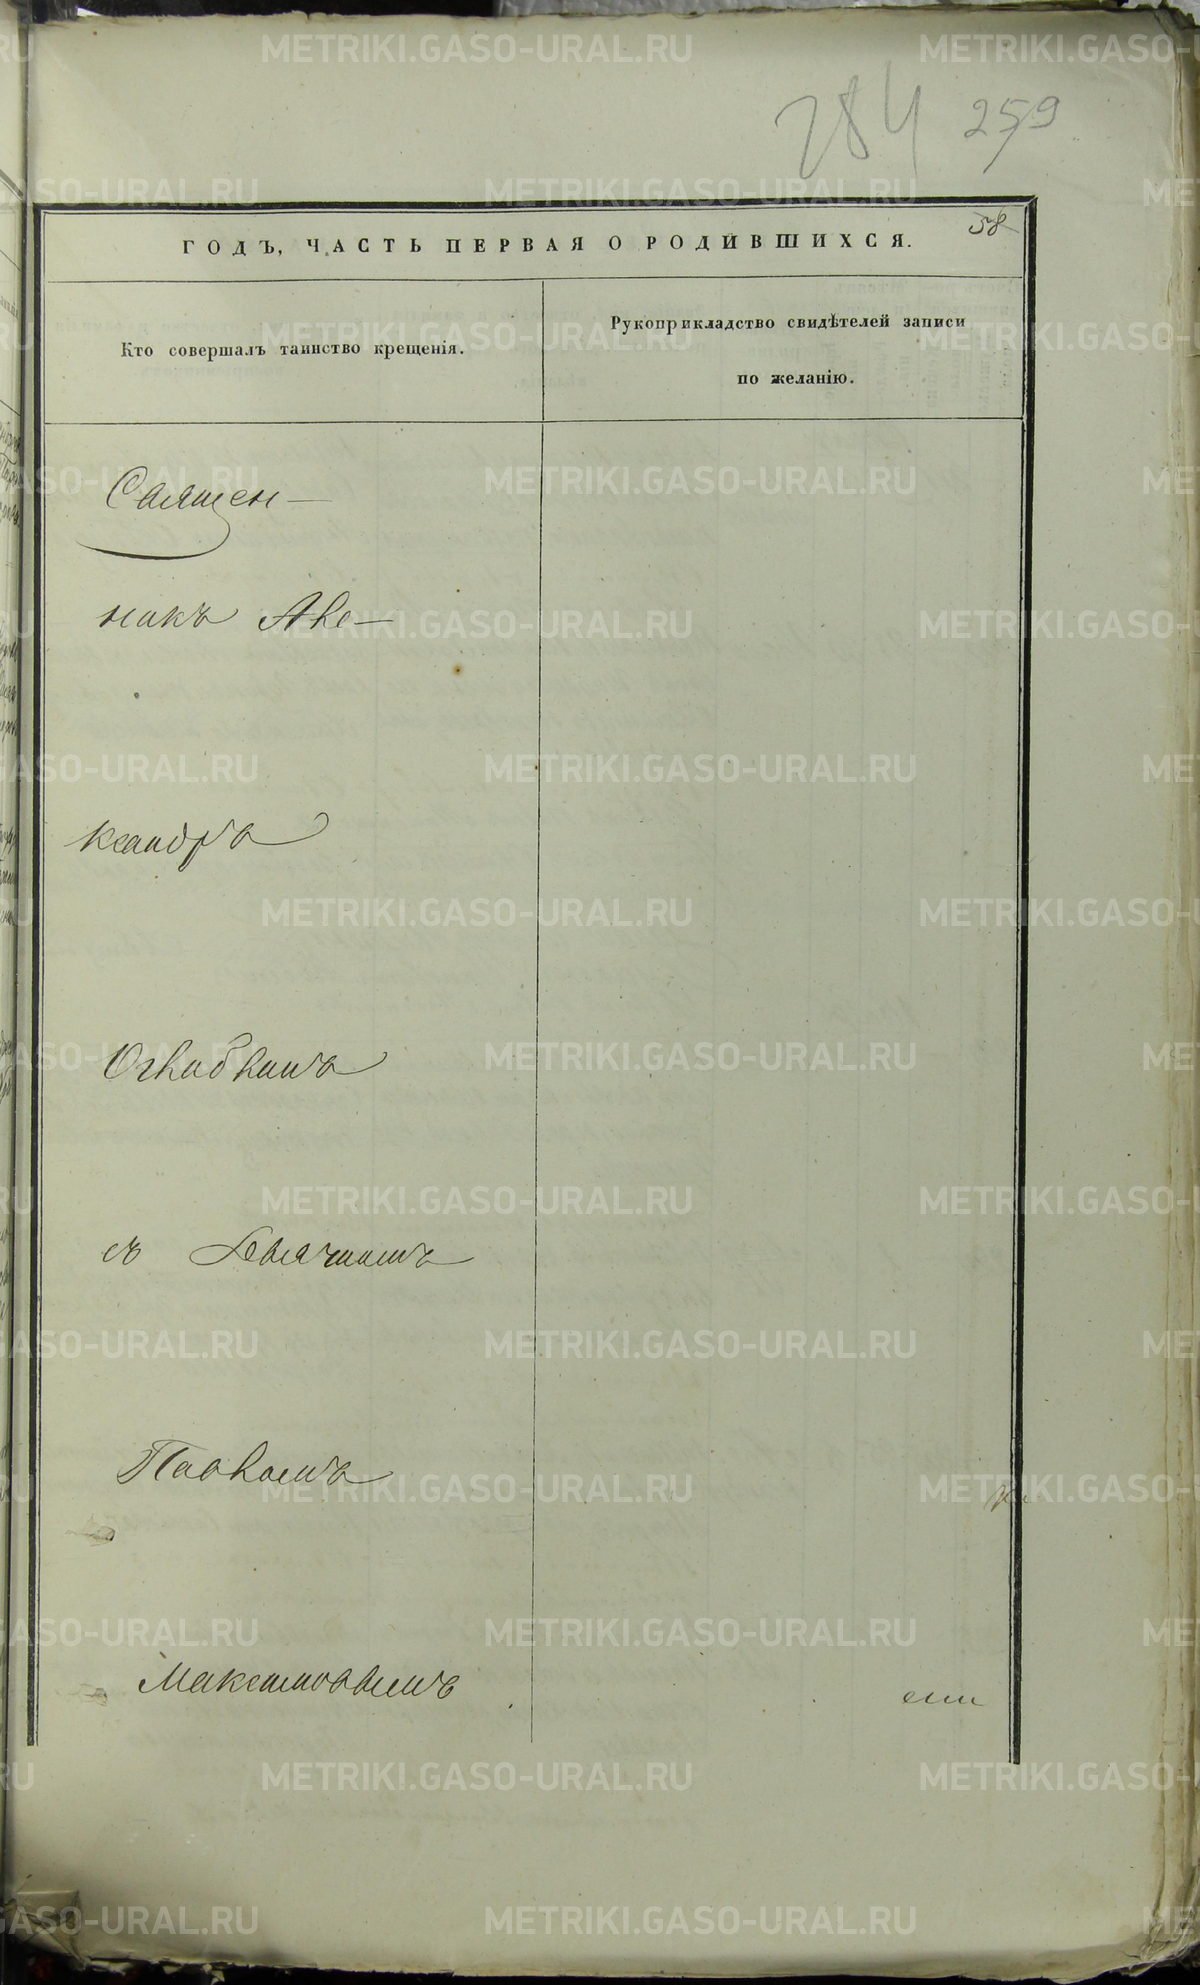 284 259
58
ГОДЪ, ЧАСТЬ ПЕРВАЯ О РОДИВШИХСЯ.
Кто совершалъ таинство крещенія.
Рукоприкладство свидѣтелей записи
по желанію.
Священ-
никъ Але-
ксандръ
съ
Павломъ
Максимовымъ
METRIKI.GASO-URAL.RU